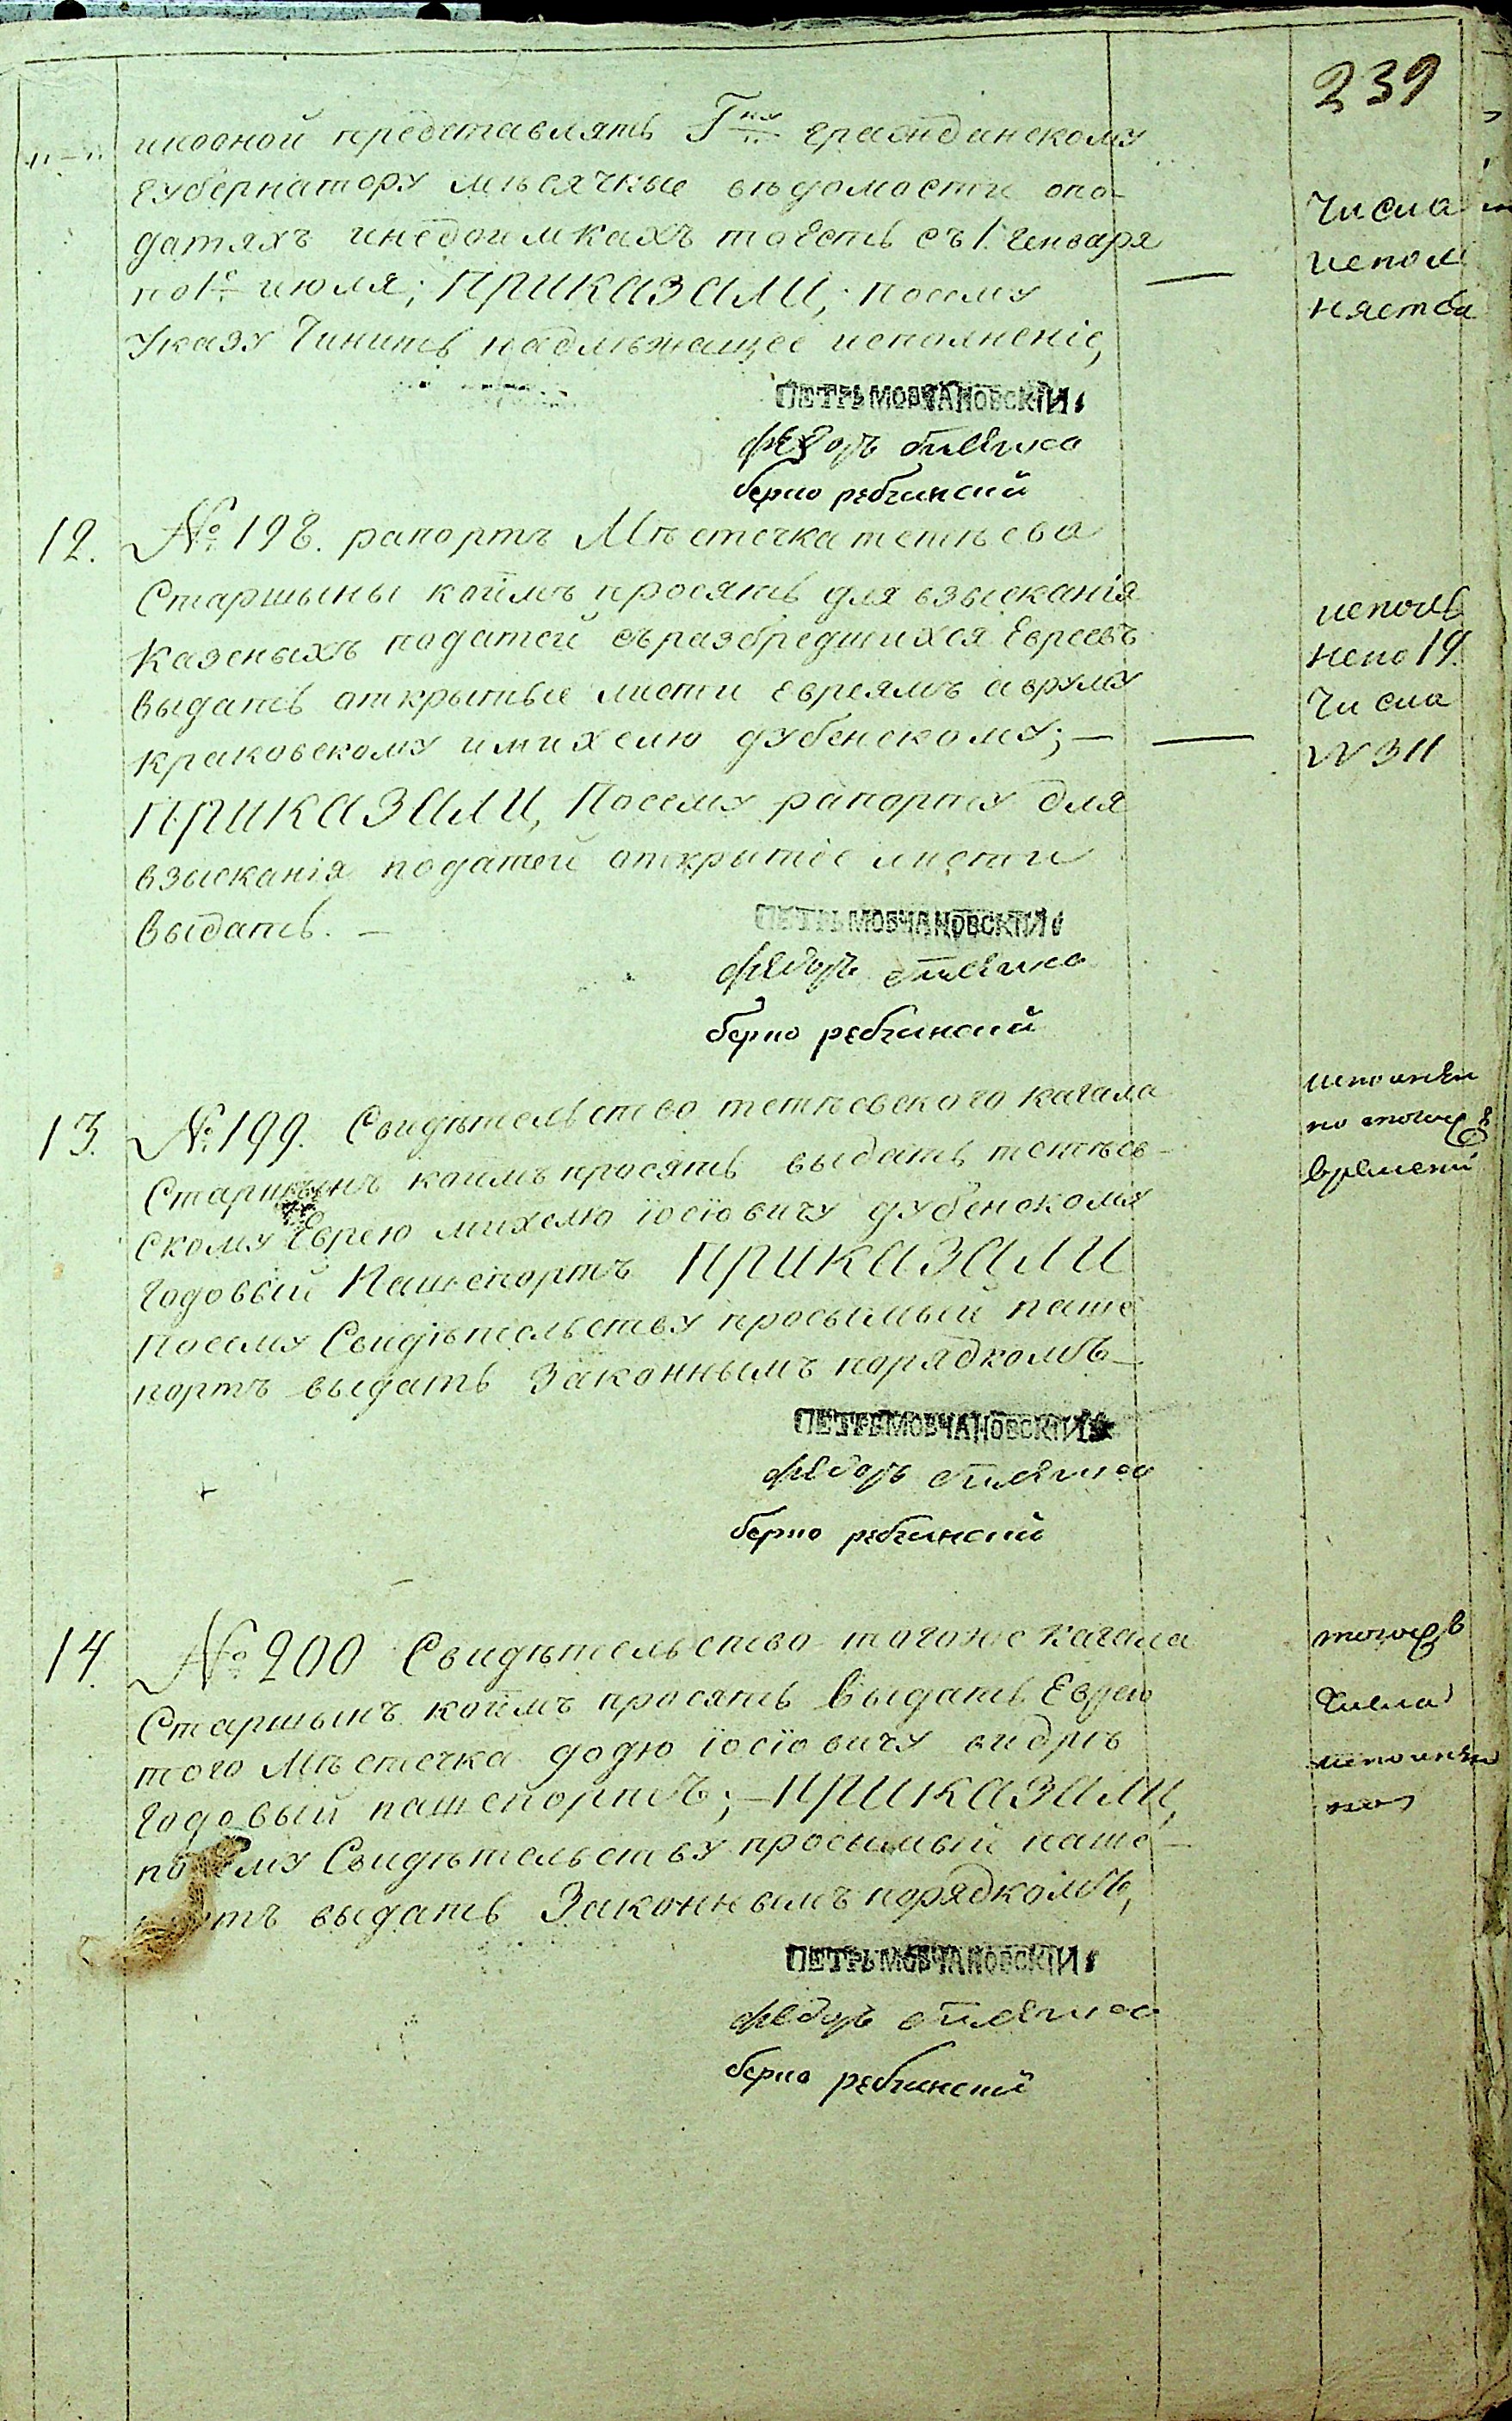 239
ипоοной представлять Гну гражданскому
Губернатору мѣсячные вѣдомости опо-
датяхъ инедоимкахъ тоесть съ 1. генваря
по 1е июля; ПРИКАЗАЛИ; посему
Указу Чинить надлѣжащее исполненіе,
Числа
испол
няется
ПЕТРЬ МОВЧАНОВСКІЙ
федоръ
берко ребчинский
12. № 198. рапортъ Мѣстечка тетѣева
Старшыны коимъ просятъ для взысканія
Казеныхъ податей съразбредшихся Евреевъ
выдать аткрытые листи евреямъ аврумУ
краковскому имихелю дубенскому; —
ПРИКАЗАЛИ, Посему рапорту для
взысканія податей открытіе листи
выдать. —
исполь
нено 19.
Числа
№ 311
ПЕТРЬ МОВЧАНОВСКІЙ
федоръ
берко ребчинский
13. № 199. Свидѣтельство тетѣевского кагала
Старшынъ коимъ просятъ выдать тетѣев-
скому Еврею михелю іосіовичу дубенскому
годовый Пашепортъ ПРИКАЗАЛИ
Посему Свидѣтельству просымый паше
портъ выдать Законнымъ порядкомъ —
времени
ПЕТРЬ МОВЧАНОВСКІЙ
федоръ
берко ребчинский
14. № 200 Свидѣтельство тогоже кагала
Старшынъ коимъ просятъ выдать Еврею
того Мѣстечка додю іосіовичу
годовый пашепортъ; — ПРИКАЗАЛИ,
посему Свидѣтельству просимый паше-
портъ выдать Законнымъ порядкомъ,
Числа
ПЕТРЬ МОВЧАНОВСКІЙ
федоръ
берко ребчинский